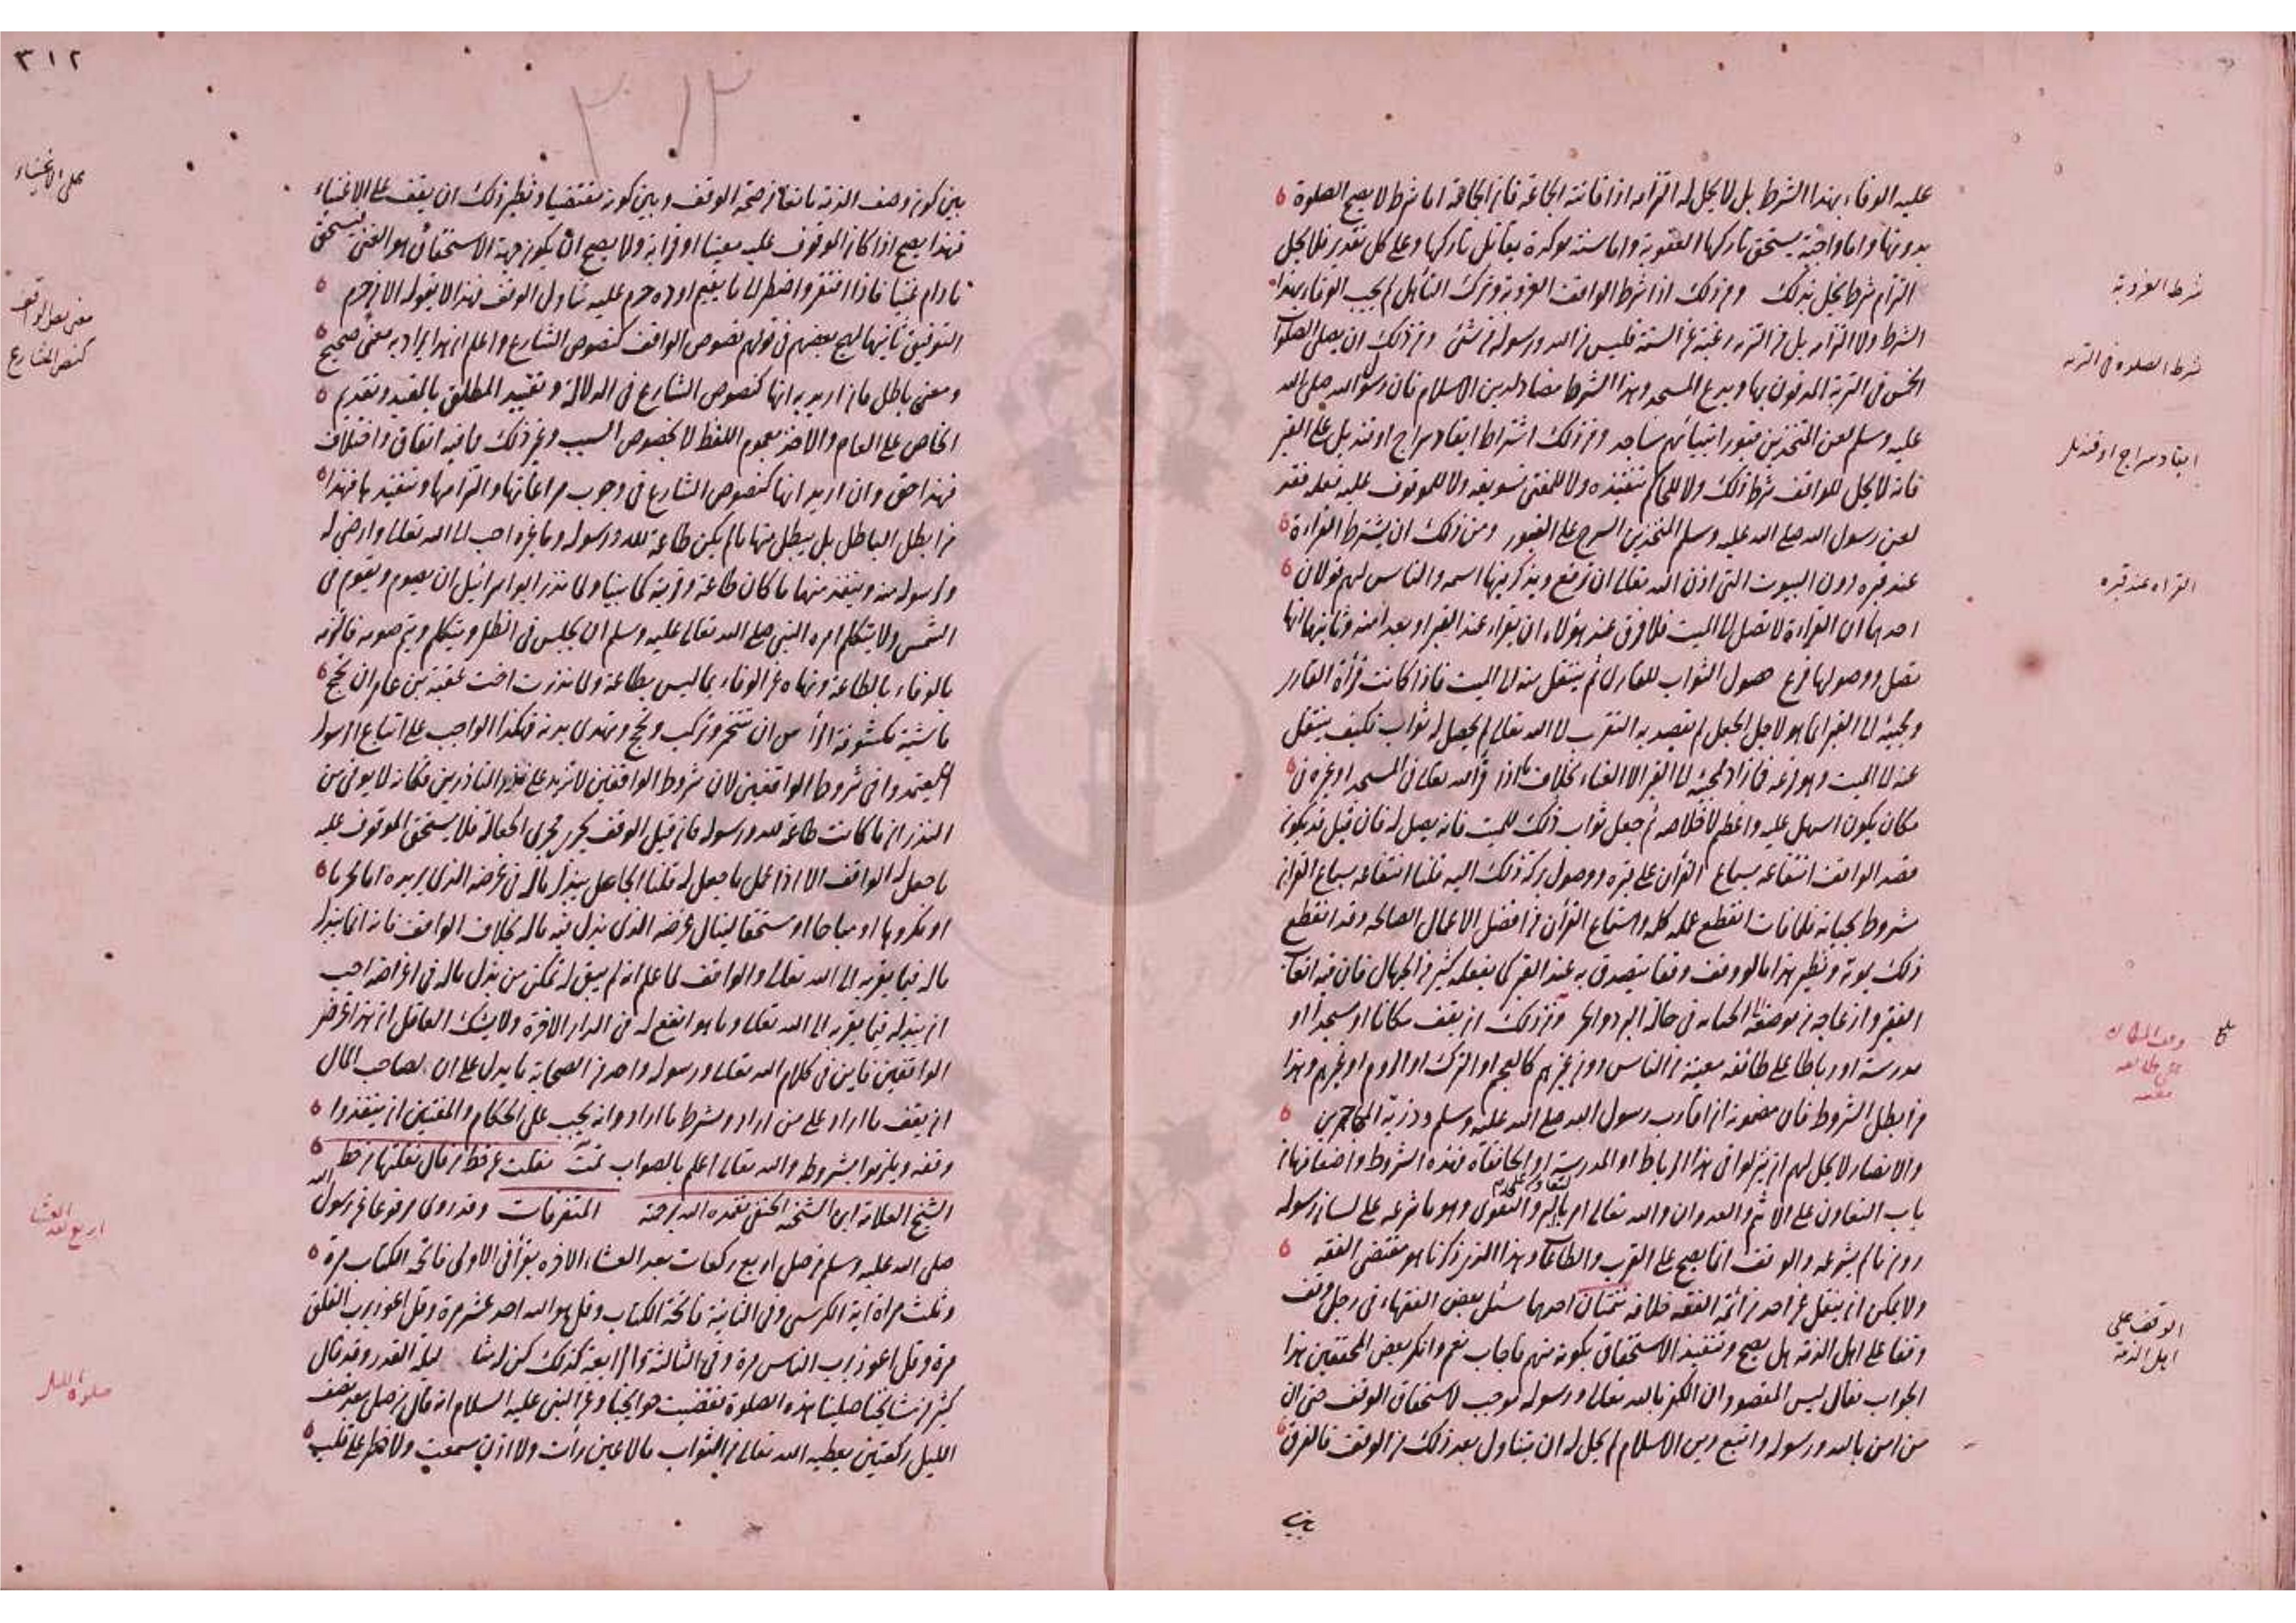 عليه الوفاء بهذا الشرط بل لا يحل له التزامه اذا فاتته الجماعة فان الجماعة اما شرط لا يصح الصلوة
بدونها واما واجبة يستحق تاركها العقوبة واما سنة موكدة يقاتل تاركها وعلى كل تقدير فلا يحل
التزام شرط يخل بذلك ومن ذلك اذا شرط الواقف العزوبة وترك التأهل لم يجب الوفاء بهذا
شرط العزوبة
الشرط ولا التزامه بل من التزمه رغبة عن السنة فليس من الله ورسوله فى شئ ومن ذلك ان يصلى الصلوات
شرط الصلوه فى التربه
الخمس فى التربة المدفون بها ويدع المسجد وهذا الشرط مضاد لدين الاسلام فان رسول الله صلى الله
عليه وسلم لعن المتخذين قبور انبيائهم مساجد ومن ذلك اشتراط ايقاد سراج او قنديل على القبر
ايقاد سراج او قنديل
فانه لا يحل للواقف شرط ذلك ولا للحاكم تنفيذه ولا للمفتى تسويغه ولا للموقوف عليه فعله فقد
لعن رسول الله صلى الله عليه وسلم المتخذين السرج على القبور ومن ذلك ان يشترط القراءة
عند قبره دون البيوت التى اذن الله تعالى ان ترفع ويذكر فيها اسمه والناس لهم قولان
القراه عند قبره
احدهما ان القراءة لا تصل الى الميت فلا فرق عند هؤلاء ان يقراء عند القبر او بعيدا منه وثانيهما انها
تصل ووصولها فرع حصول الثواب للقارى ثم ينتقل منه الى الميت فاذا كانت قرأة القارى
ومجيئه الى القبر انما هو لاجل الجعل لم يقصد به التقرب الى الله تعالى لم يحصل له ثواب فكيف ينتقل
عنه الى الميت وهو فرعه فما زاد لمجيئه الى القبر الا العناء بخلاف ما اذا قرأ لله تعالى فى المسجد او غيره فى
مكان يكون اسهل عليه واعظم لاخلاصه ثم جعل ثواب ذلك للميت فانه يصل له فان قيل قد يكون
قصد الواقف انتفاعه بسماع القرأن على قبره ووصول بركة ذلك اليه قلنا انتفاعه بسماع القران
مشروط بحياته فلما مات انقطع عمله كله واستماع القرأن من افضل الاعمال الصالحه وقد انقطع
ذلك بموته ونظير هذا ما لو وقف وقفا يتصدق به عند القبر كما يفعله كثير من الجهال فان فيه اتعاب
الفقير وازعاجه من موضعه الى الجبانه فى حالة البرد والحر ومن ذلك ان يقف مكانا او مسجدا او
وقف المكان
على طائفه
معينه
مدرسة او رباطا على طائفة معينة من الناس دون غيرهم كالعجم او الترك او الروم او غيرهم وهذا
من ابطل الشروط فان مضمونه ان اقارب رسول الله صلى الله عليه وسلم وذرية المهاجرين
والانصار لا يحل لهم ان ينزلوا فى هذا الرباط او المدرسة او الخانقاه فهذه الشروط واضعافها من
باب التعاون على الاثم والعدوان والله تعالى امر بالبر والتقوى وهو ما شرعه على لسان رسوله
دون ما لم يشرعه والوقف انما يصح على القرب والطاعات وهذا الذى ذكرنا هو مقتضى الفقه
ولا يمكن ان ينقل عن احد من ائمة الفقه خلافه تتمتان احدهما سئل بعض الفقهاء فى رجل وقف
الوقف على
اهل الذمة
وقفا على اهل الذمة هل يصح وتنفيذ الاستحقاق بكونه منهم فاجاب نعم وانكر بعض المحققين هذا
الجواب فقال ليس المقصود ان الكفر بالله تعالى ورسوله موجب لاستحقاق الوقف حتى ان
من امن بالله ورسوله واتبع دين الاسلام لم يحل له ان يتناول بعد ذلك من الوقف فالفرق
بين
٣١٢
٣١٢
بين كون وصف الذمة مانعا من صحة الوقف وبين كونه مقتضيا ونظير ذلك ان يقف على الاغنياء
على الاغنياء
فهذا يصح اذا كان الموقوف عليه معينا او قرابة ولا يصح ان يكون جهة الاستحقاق هو الغنى فيستحق
ما دام غنيا فاذا افتقر واضطر الى ما يقيم اوده حرم عليه تناول الوقف فهذا لا يقوله الا من حرم
التوفيق ثانيهما لهج بعضهم فى قولهم نصوص الواقف كنصوص الشارع واعلم ان هذا يراد به معنى صحيح
معنى نص الواقف
كنص الشارع
ومعنى باطل فان اريد به انها كنصوص الشارع فى الدلالة وتقييد المطلق بالمقيد وتقديم
الخاص على العام والاخذ بعموم اللفظ لا بخصوص السبب وغير ذلك مما فيه اتفاق واختلاف
فهذا حق وان اريد انها كنصوص الشارع فى وجوب مراعاتها والتزامها وتنفيذها فهذا
من ابطل الباطل بل يبطل منها ما لم يكن طاعة لله ورسوله وما غيره احب الى الله تعالى وارضى له
ولرسوله منه وينفذ منها ما كان طاعة وقربة كما بينا ولما نذر ابو اسرائيل ان يصوم ويقوم فى
الشمس ولا يتكلم امره النبى صلى الله تعالى عليه وسلم ان يجلس فى الظل ويتكلم ويتم صومه فالزمه
بالوفاء بالطاعة ونهاه عن الوفاء بما ليس بطاعة ولما نذرت اخت عقبة بن عامر ان تحج
ماشية مكشوفة الرأس امر ان تختمر وتركب وتحج وتهدى بدنة فهكذا الواجب على اتباع الرسول
ان يعتمدوا فى شروط الواقفين لان شروط الواقفين لا تزيد على نذر الناذرين فكما انه لا يوفى من
النذر الا ما كانت طاعة لله ورسوله فان قيل الوقف يجرى مجرى الجعالة فلا يستحق الموقوف عليه
ما جعل له الواقف الا اذا عمل ما جعل له قلنا الجاعل يبذل ماله فى غرضه الذى يريده اما محرما
او مكروها او مباحا او مستحقا لينال غرضه الذى بذل فيه ماله بخلاف الواقف فانه انما يبذل
ماله فيما يقربه الى الله تعالى والواقف لما علم انه لم يبق له تمكن من بذل ماله فى اغراضه احب
ان يبذله فيما يقربه الى الله تعالى وما هو انفع له فى الدار الاخرة ولا يشك العاقل ان هذا غرض
الواقفين فاين فى كلام الله تعالى ورسوله واحد من الصحابة ما يدل على ان لصاحب المال
ان يقف ما اراد على من اراد وشرط ما اراد وانه يجب على الحكام والمفتين ان ينفذوا
وقفه ويلزموا بشروطه والله تعالى اعلم بالصواب تمت نقلت من خط من قال نقلتها من خط
الشيخ العلامة ابن الشحنه الحنفى تغمده الله برحمته المتفرقات وقد روى مرفوعا عن رسول الله
صلى الله عليه وسلم من صلى اربع ركعات بعد العشاء الاخره يقرأ فى الاولى فاتحة الكتاب مرة
اربع بعد العشاء
وثلث مراة اية الكرسى وفى الثانية فاتحة الكتاب وقل هو الله احد عشر مرة وقل اعوذ برب الفلق
مرة وقل اعوذ برب الناس مرة وفى الثالثة والرابعة كذلك كن له مثل ليلة القدر وقد قال
كثير من مشايخنا صلينا هذه الصلوة فقضيت حوائجنا وعن النبى عليه السلام انه قال من صلى بعد نصف
صلوة الليل
الليل ركعتين يعطيه الله تعالى من الثواب ما لا عين رأت ولا اذن سمعت ولا خطر على قلب